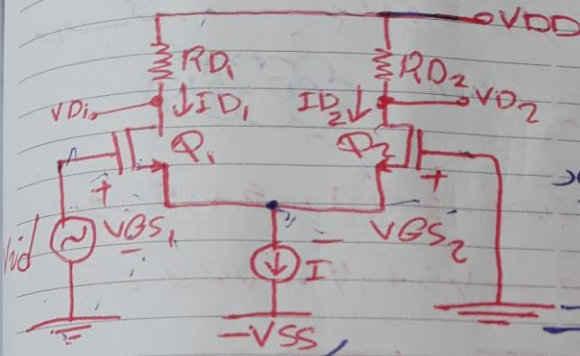 VDD
RD1 RD2
VD1 ID1 ID2 VD2
Q1 Q2
+ +
Vid VGS1 - - VGS2
I
-VSS